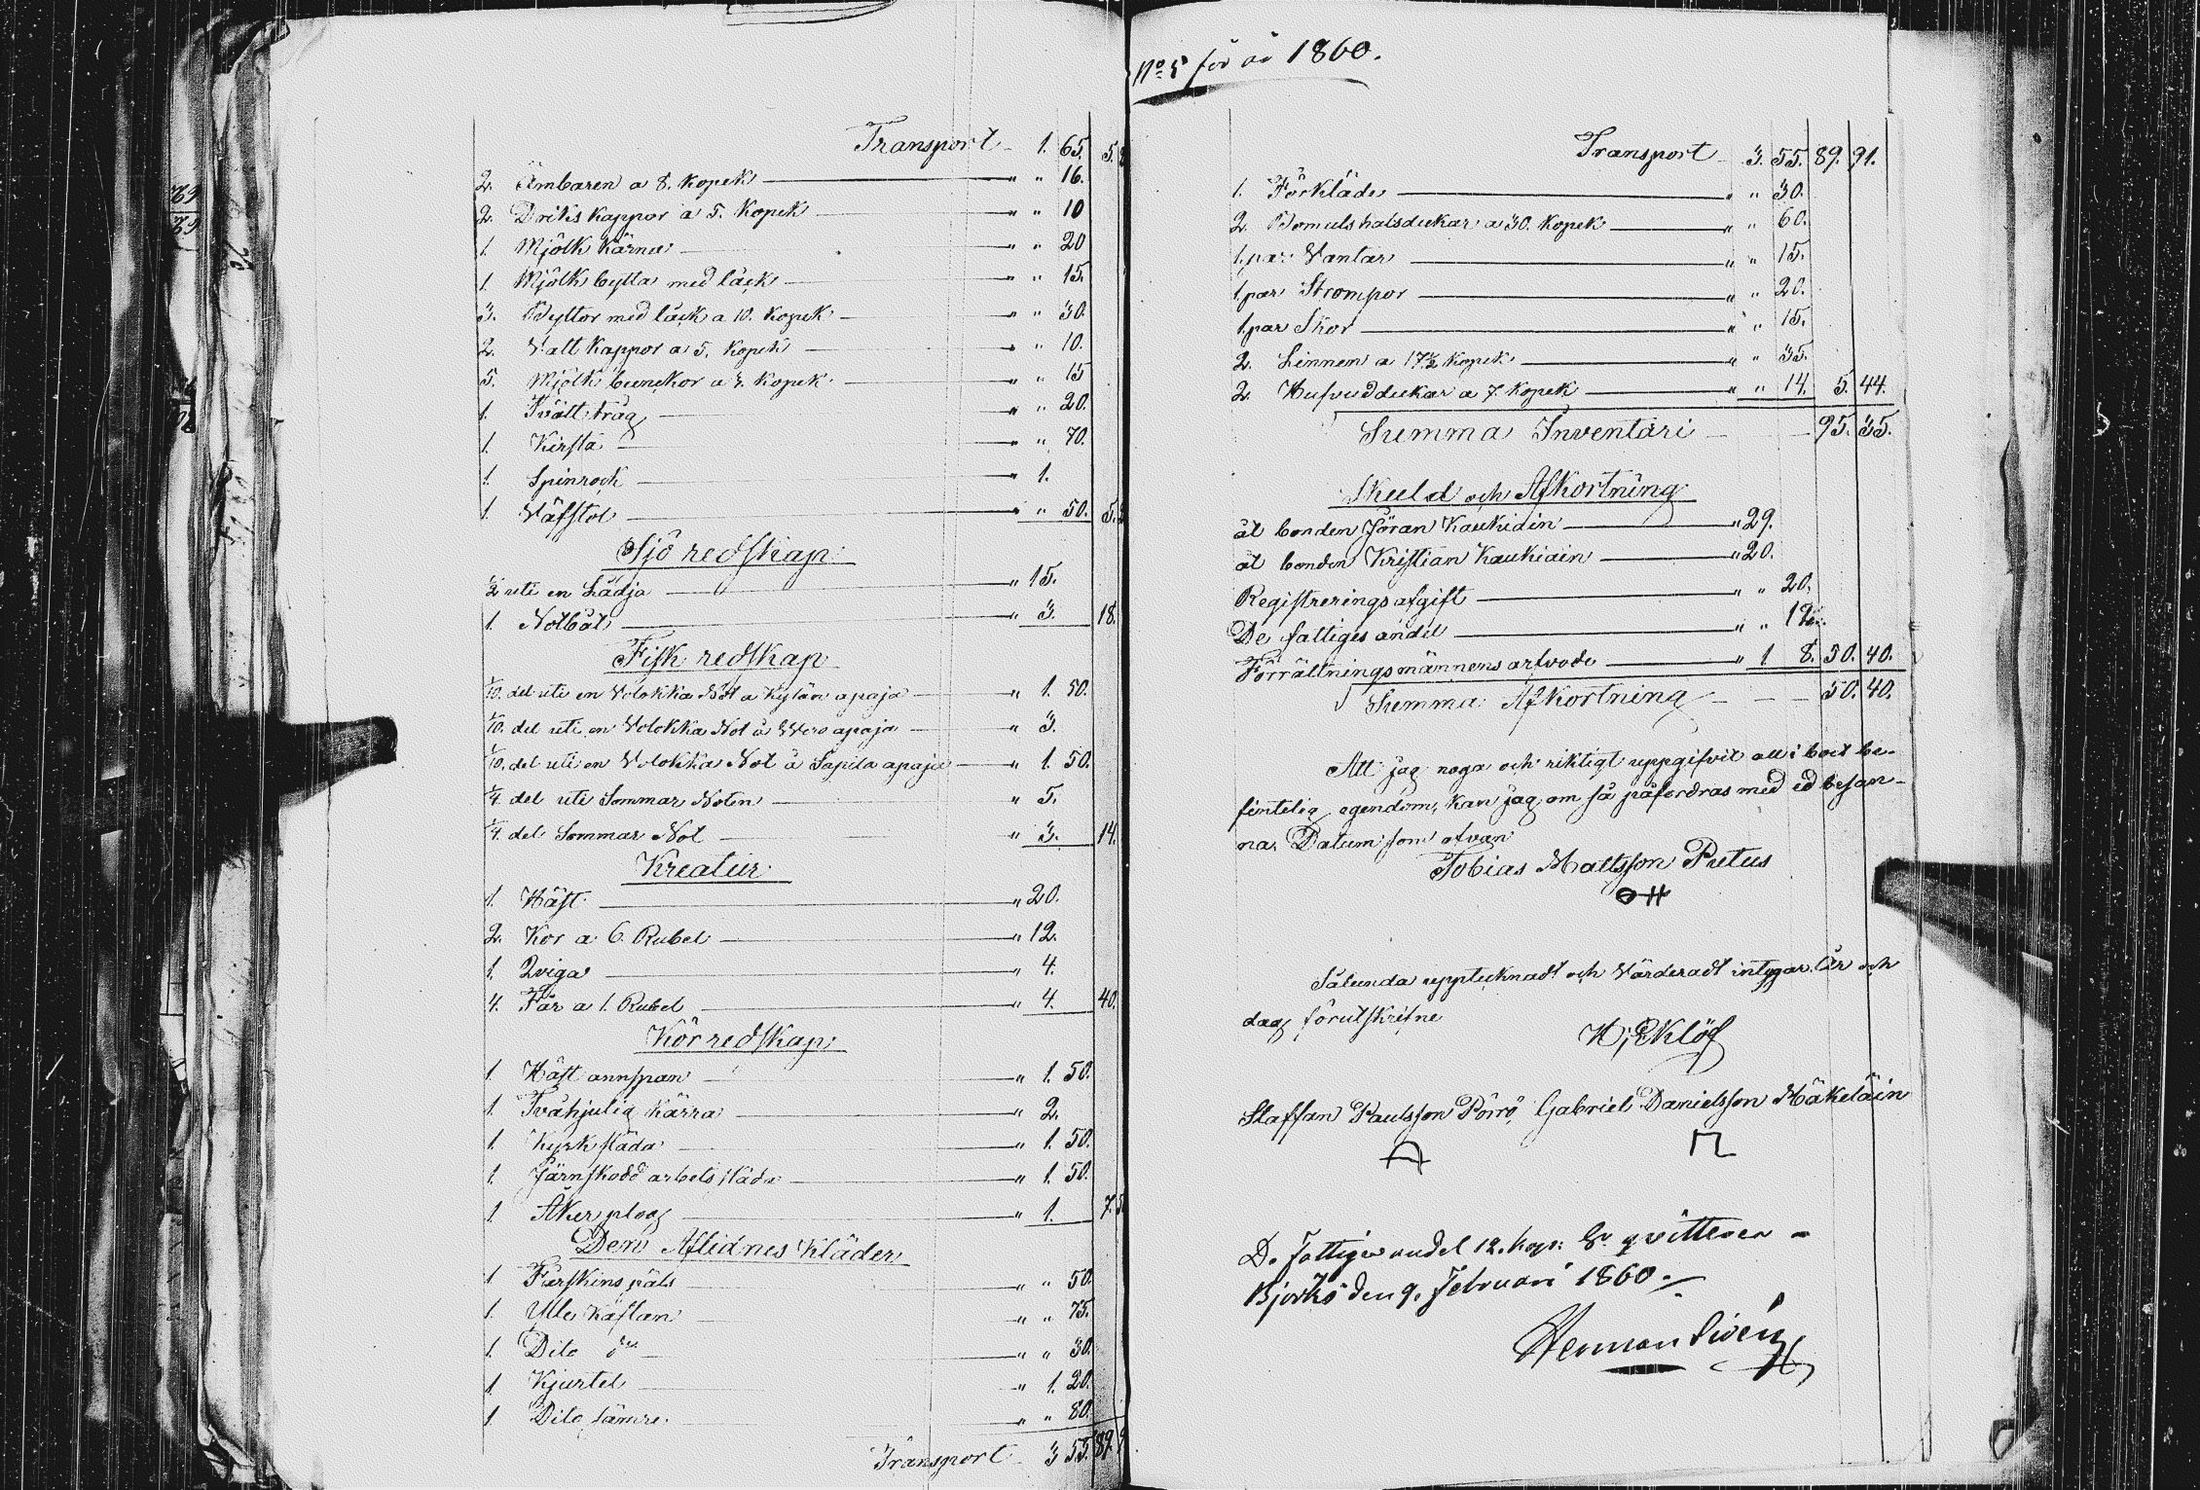 Transport 1. 65. 5.
2. Ämbaren a 8. Kopek " " 16.
2. Driks kappor a 5. Kopek " " 10
1. Mjölk Kärna " " 20
1. Mjölk bytta med läck " " 15.
3. Byttor med läck a 10. Kopek " " 30.
2. Vatt kappor a 5. Kopek " " 10.
5. Mjölk bunckor a 3. Kopek " " 15
1. Tvätt tråg " " 20.
1. Kirsta " " 70.
1. Spinrock " 1.
1. Väfstol " " 50. 5.
Sjö redskap
1/2 uti en Lädja " 15.
1. Notbåt " 3. 18.
Fisk redskap
1/10. del uti en Volokka Not a Kylän apaja " 1. 50.
1/10. del uti en Volokka Not a Wero apaja " 3.
1/10. del uti en Volokka Not a Sapila apaja " 1. 50.
1/4. del uti Sommar Noten " 5.
1/4. del Sommar Not " 3. 14.
Kreatur
1. Häst " 20.
2. Kor a 6 Rubel " 12.
1. Qviga " 4.
4. Får a 1. Rubel " 4. 40.
Körredskap
1. Häst annspan " 1. 50.
1. Tvåhjulig Kärra " 2.
1. Kyrk släda " 1. 50.
1. Järnskodd arbets släda " 1. 50.
1. Åkerplog " 1. 7.
Den Aflidnes Kläder
1 Fårskins päls " " 50
1. Ylle Kaftan " " 75.
1. Dito do " " 30.
1 Kjurtel " 1. 20.
1 Dito sämre " " 80.
Transport 3 55. 89.
No 5 för år 1860.
Transport 3. 55. 89. 91.
1. Förkläde " " 30.
2. Bomulshalsdukar a 30. Kopek " " 60.
1. par Vantar " " 15.
1. par Strompor " " 20.
1. par Skor " " 15.
2. Linnen a 17 1/2 Kopek " " 35.
2. Hufvuddukar a 7. Kopek " " 14. 5. 44.
Summa Inventari 95. 35.
Skuld och Afkortning
åt bonden Jöran Kaukiain " 29.
åt bonden Kristian Kaukiain " 20.
Registrerings afgift " " 20.
De fattiges andel " " 12.
Förrättningsmännens arfvode " 1 8. 50. 40.
Summa Afkortning 50. 40.
Att jag noga och riktigt uppgifvit all i boet be-
fintelig egendom, kan jag om så påfordras med ed besan-
na. Datum som ofvan
Tobias Mattsson Putus
Sålunda upptecknadt och Värderadt intygar. År och
dag förutskrifne
H; Eklöf
Staffan Paulsson Pörrö Gabriel Danielsson Mäkeläin
De Fattiges andel 12. kop: Sr qvitteras
Björkö den 9. Februari 1860.
Herman Sivén